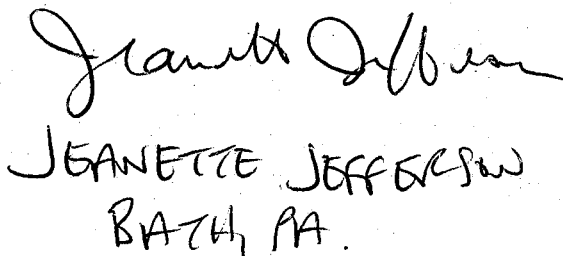 Jeanette Jefferson
JEANETTE JEFFERSON
BATH, PA.